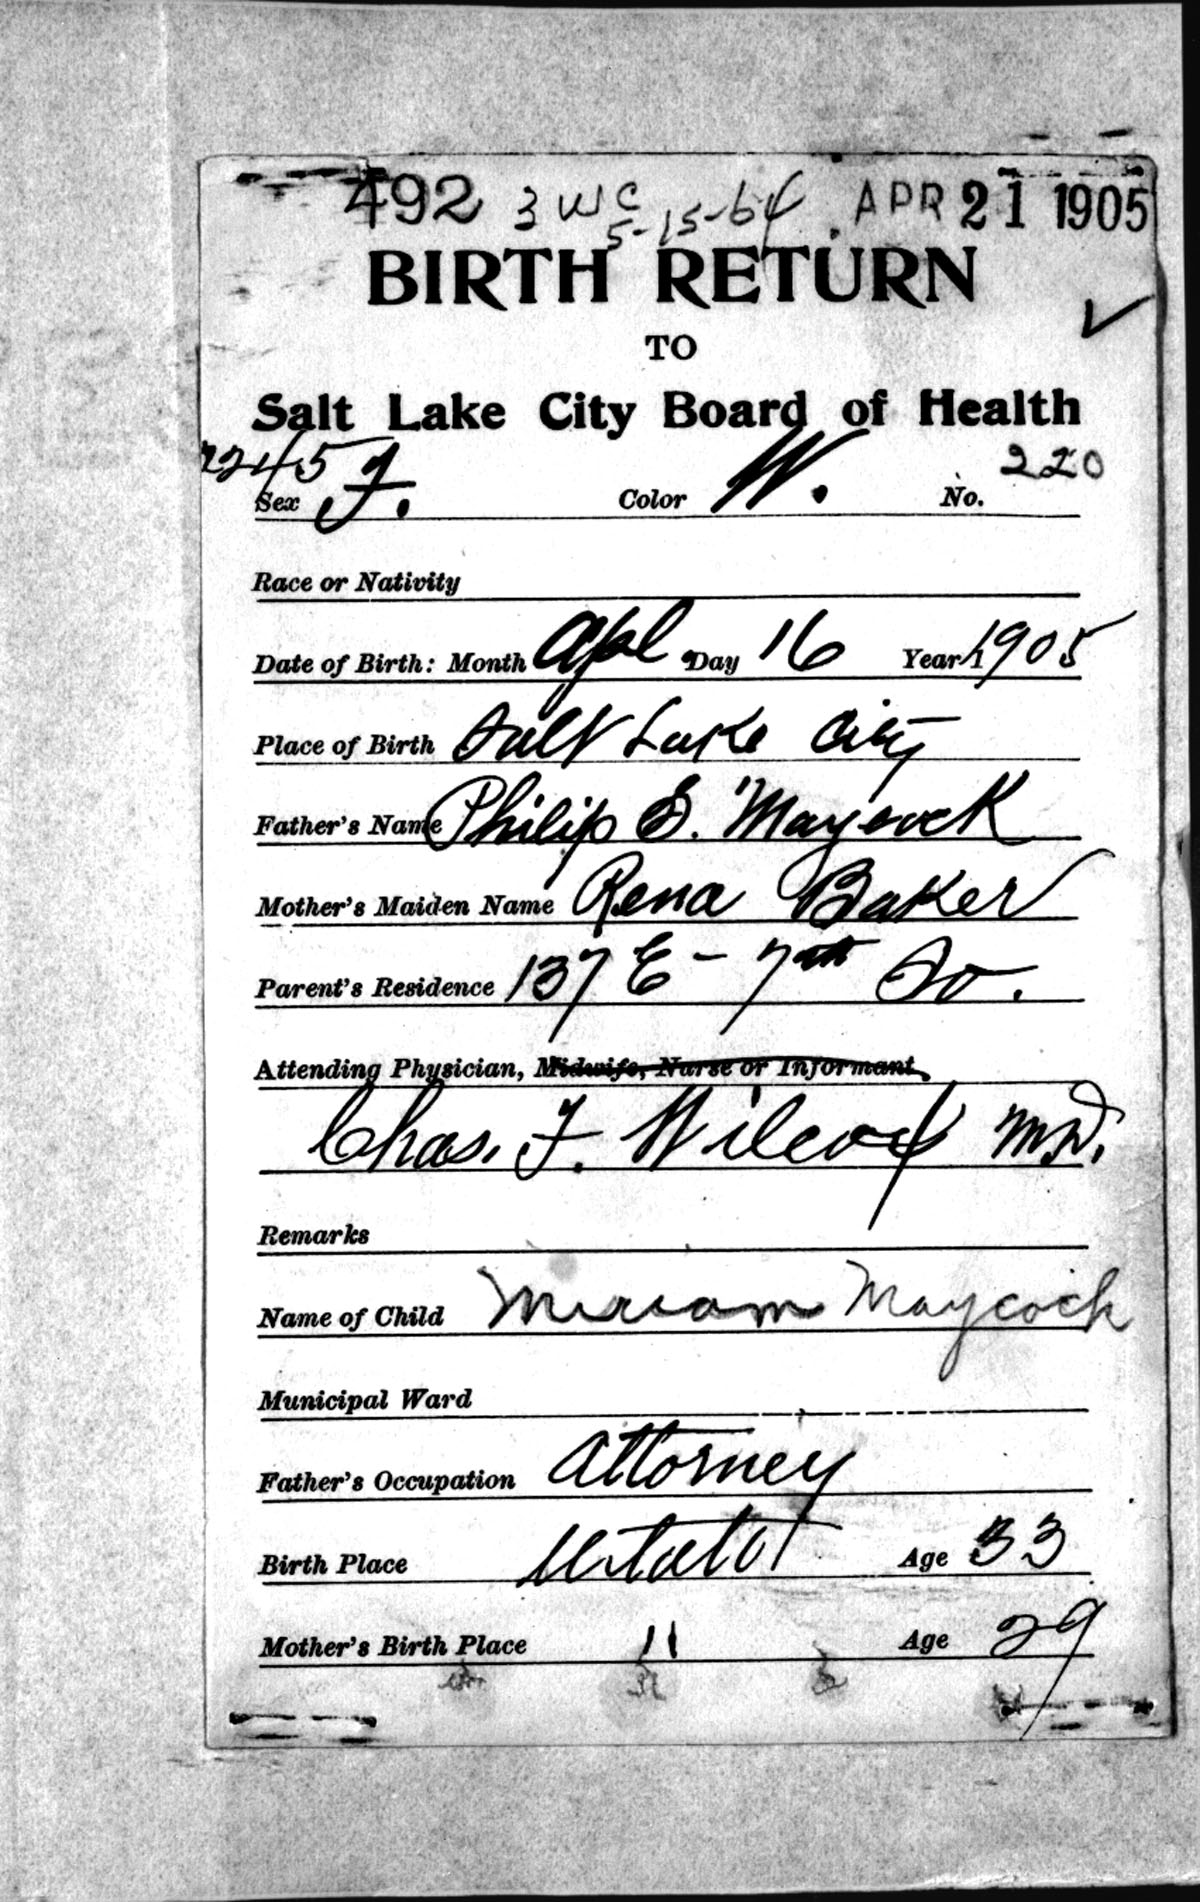 492 3 WC 5-15-64 APR 21 1905
BIRTH RETURN
TO
Salt Lake City Board of Health
22457
Sex F. Color W. No. 220
Race or Nativity
Date of Birth: Month Apl. Day 16 Year 1905
Place of Birth Salt Lake City
Father's Name Philip S. Maycock
Mother's Maiden Name Rena Baker
Parent's Residence 137 E - 7th So.
Attending Physician, Midwife, Nurse or Informant
Chas. F. Wilcox M.D.
Remarks
Name of Child Miriam Maycock
Municipal Ward
Father's Occupation Attorney
Birth Place Utah Age 33
Mother's Birth Place " Age 29